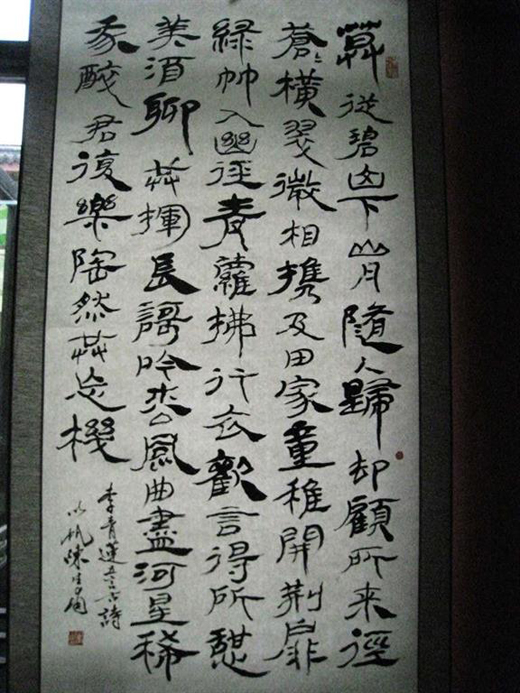 暮從碧山下山月隨人歸却顧所來徑
蒼〻橫翠微相攜及田家童稚開荊扉
綠竹入幽徑青蘿拂行衣歡言得所憩
美酒聊共揮長謌吟松風曲盡河星稀
我醉君復樂陶然共忘機
李青蓮五古詩